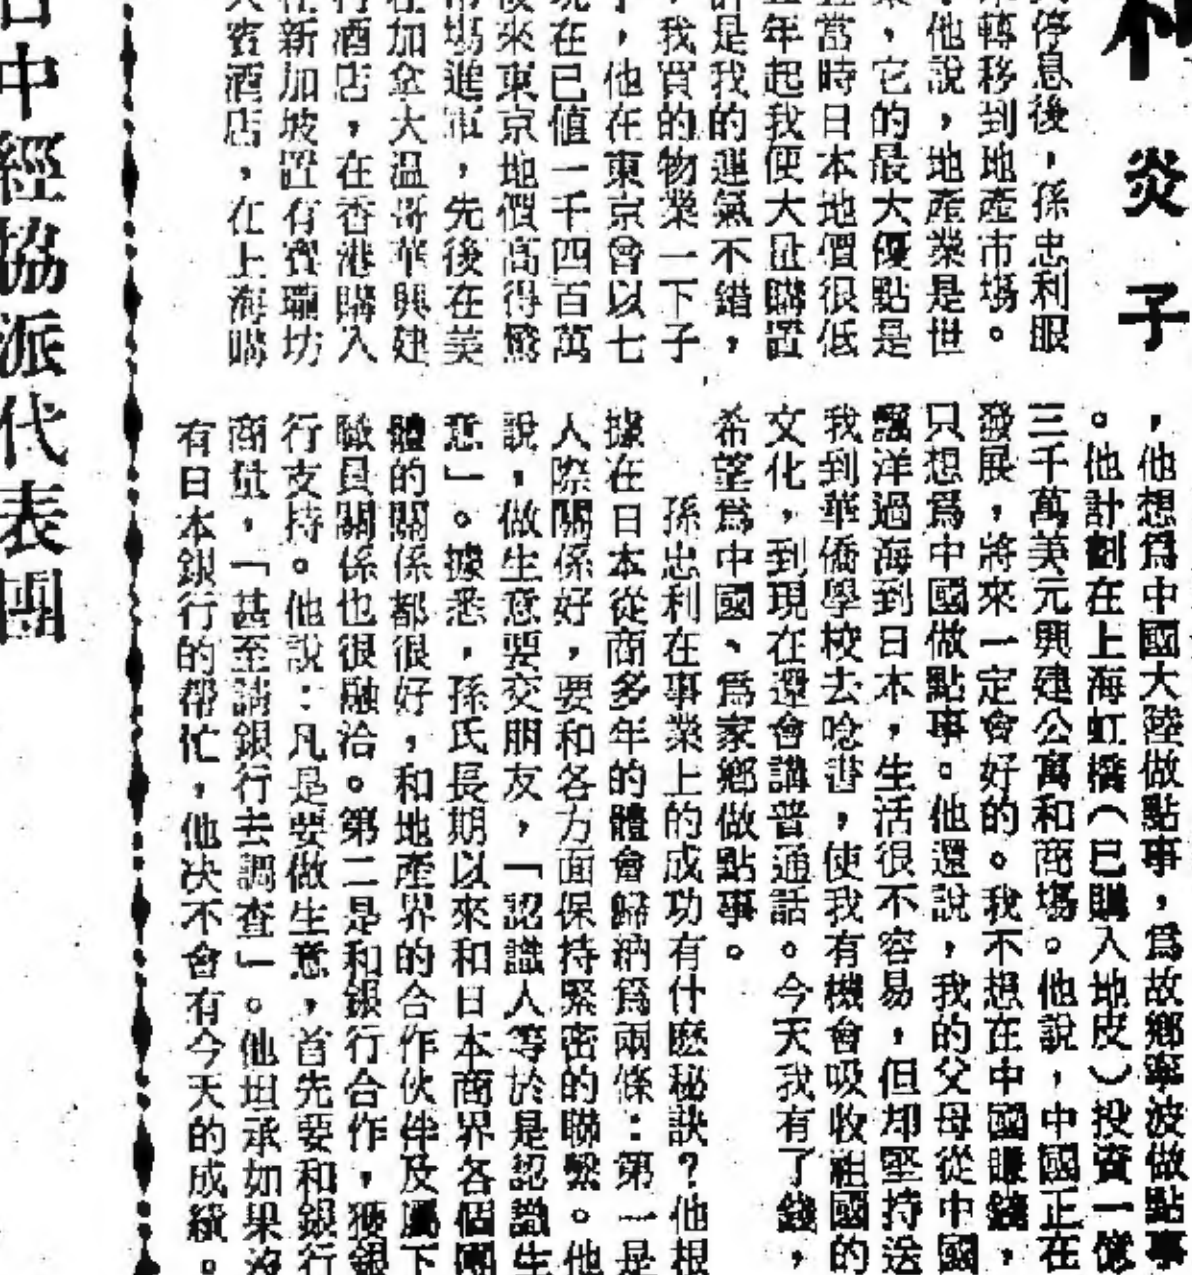 炎子
停息後，孫忠利眼
轉移到地產市場。
他說，地產業是世
，它的最大優點是
當時日本地價很低
年起我便大量購置
是我的運氣不錯，
我買的物業一下子
，他在東京曾以七
在已值一千四百萬
來東京地價高得驚
場進軍，先後在美
加拿大温哥華興建
酒店，在香港購入
新加坡置有賓瓏坊
賓酒店，在上海購
，他想爲中國大陸做點事，爲故鄉寧波做點事
。他計劃在上海虹橋（已購入地皮）投資一億
三千萬美元興建公寓和商場。他說，中國正在
發展，將來一定會好的。我不想在中國賺錢，
只想爲中國做點事。他還說，我的父母從中國
飄洋過海到日本，生活很不容易，但却堅持送
我到華僑學校去唸書，使我有機會吸收祖國的
文化，到現在還會講普通話。今天我有了錢，
希望爲中國、爲家鄉做點事。
孫忠利在事業上的成功有什麽秘訣？他根
據在日本從商多年的體會歸納爲兩條：第一是
人際關係好，要和各方面保持緊密的聯繫。他
說，做生意要交朋友，「認識人等於是認識生
意」。據悉，孫氏長期以來和日本商界各個團
體的關係都很好，和地產界的合作伙伴及屬下
職員關係也很融洽。第二是和銀行合作，獲銀
行支持。他說：凡是要做生意，首先要和銀行
商量，「甚至請銀行去調查」。他坦承如果沒
有日本銀行的帮忙，他决不會有今天的成績。
中經協派代表團